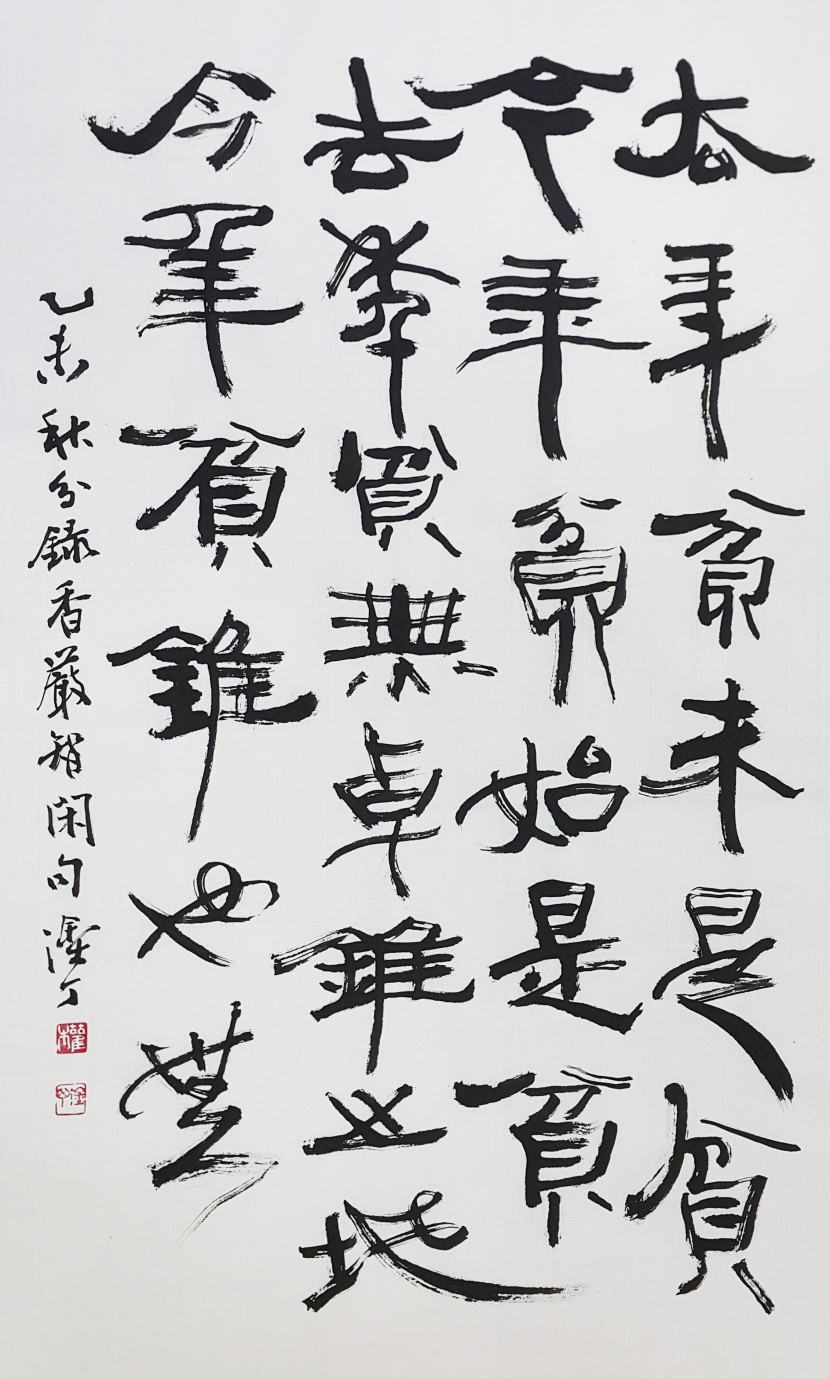 去年貧未是貧
今年貧始是貧
去年貧無卓錐之地
今年貧錐也無
乙未秋分錄香嚴智閑句 丁
權